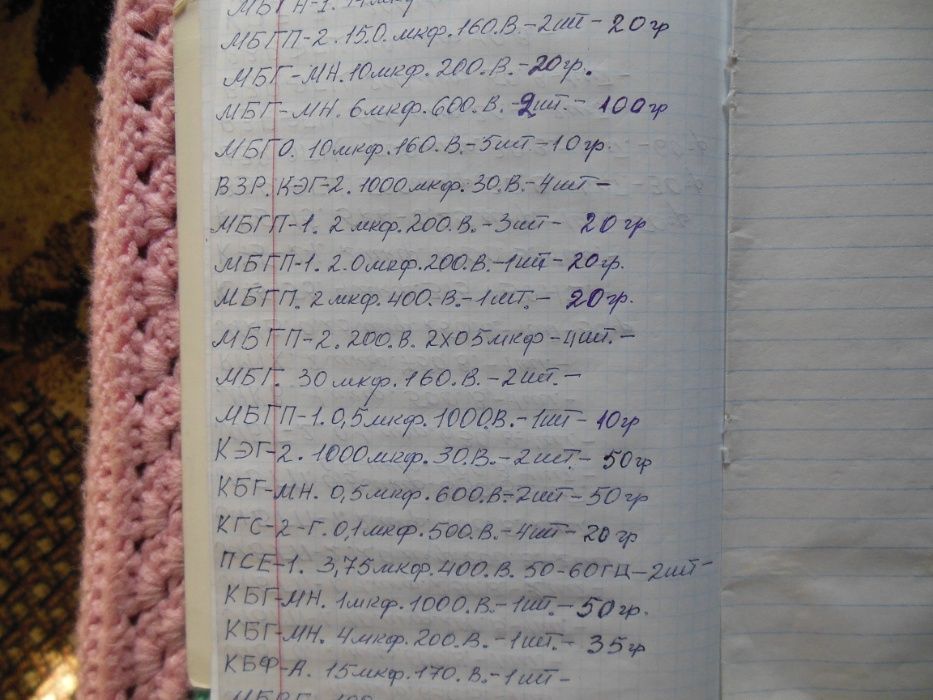 МБГП-2. 15.0. мкф. 160. В. - 2шт - 20 гр
МБГ-МН. 10 мкф. 200. В. - 20 гр.
МБГ-МН. 6 мкф. 600. В. - 2шт. - 100 гр
МБГО. 10 мкф. 160. В. - 5шт - 10 гр.
ВЗР. КЭГ-2. 1000 мкф. 30. В. - 4шт -
МБГП-1. 2 мкф. 200. В. - 3шт - 20 гр
МБГП-1. 2.0 мкф. 200. В. - 1шт - 20 гр.
МБГП. 2 мкф. 400. В. - 1шт. - 20 гр.
МБГП-2. 200. В. 2х05 мкф - 4шт. -
МБГ. 30 мкф. 160. В. - 2шт. -
МБГП-1. 0,5 мкф. 1000. В. - 1шт - 10 гр
КЭГ-2. 1000 мкф. 30. В. - 2шт. - 50 гр
КБГ-МН. 0,5 мкф. 600. В. - 2шт - 50 гр
КГС-2-Г. 0,1 мкф. 500. В. - 4шт - 20 гр
ПСЕ-1. 3,75 мкф. 400. В. 50-60 ГЦ - 2шт -
КБГ-МН. 1 мкф. 1000. В. - 1шт. - 50 гр.
КБГ-МН. 4 мкф. 200. В. - 1шт. - 35 гр
КБФ-А. 15 мкф. 170. В. - 1шт -